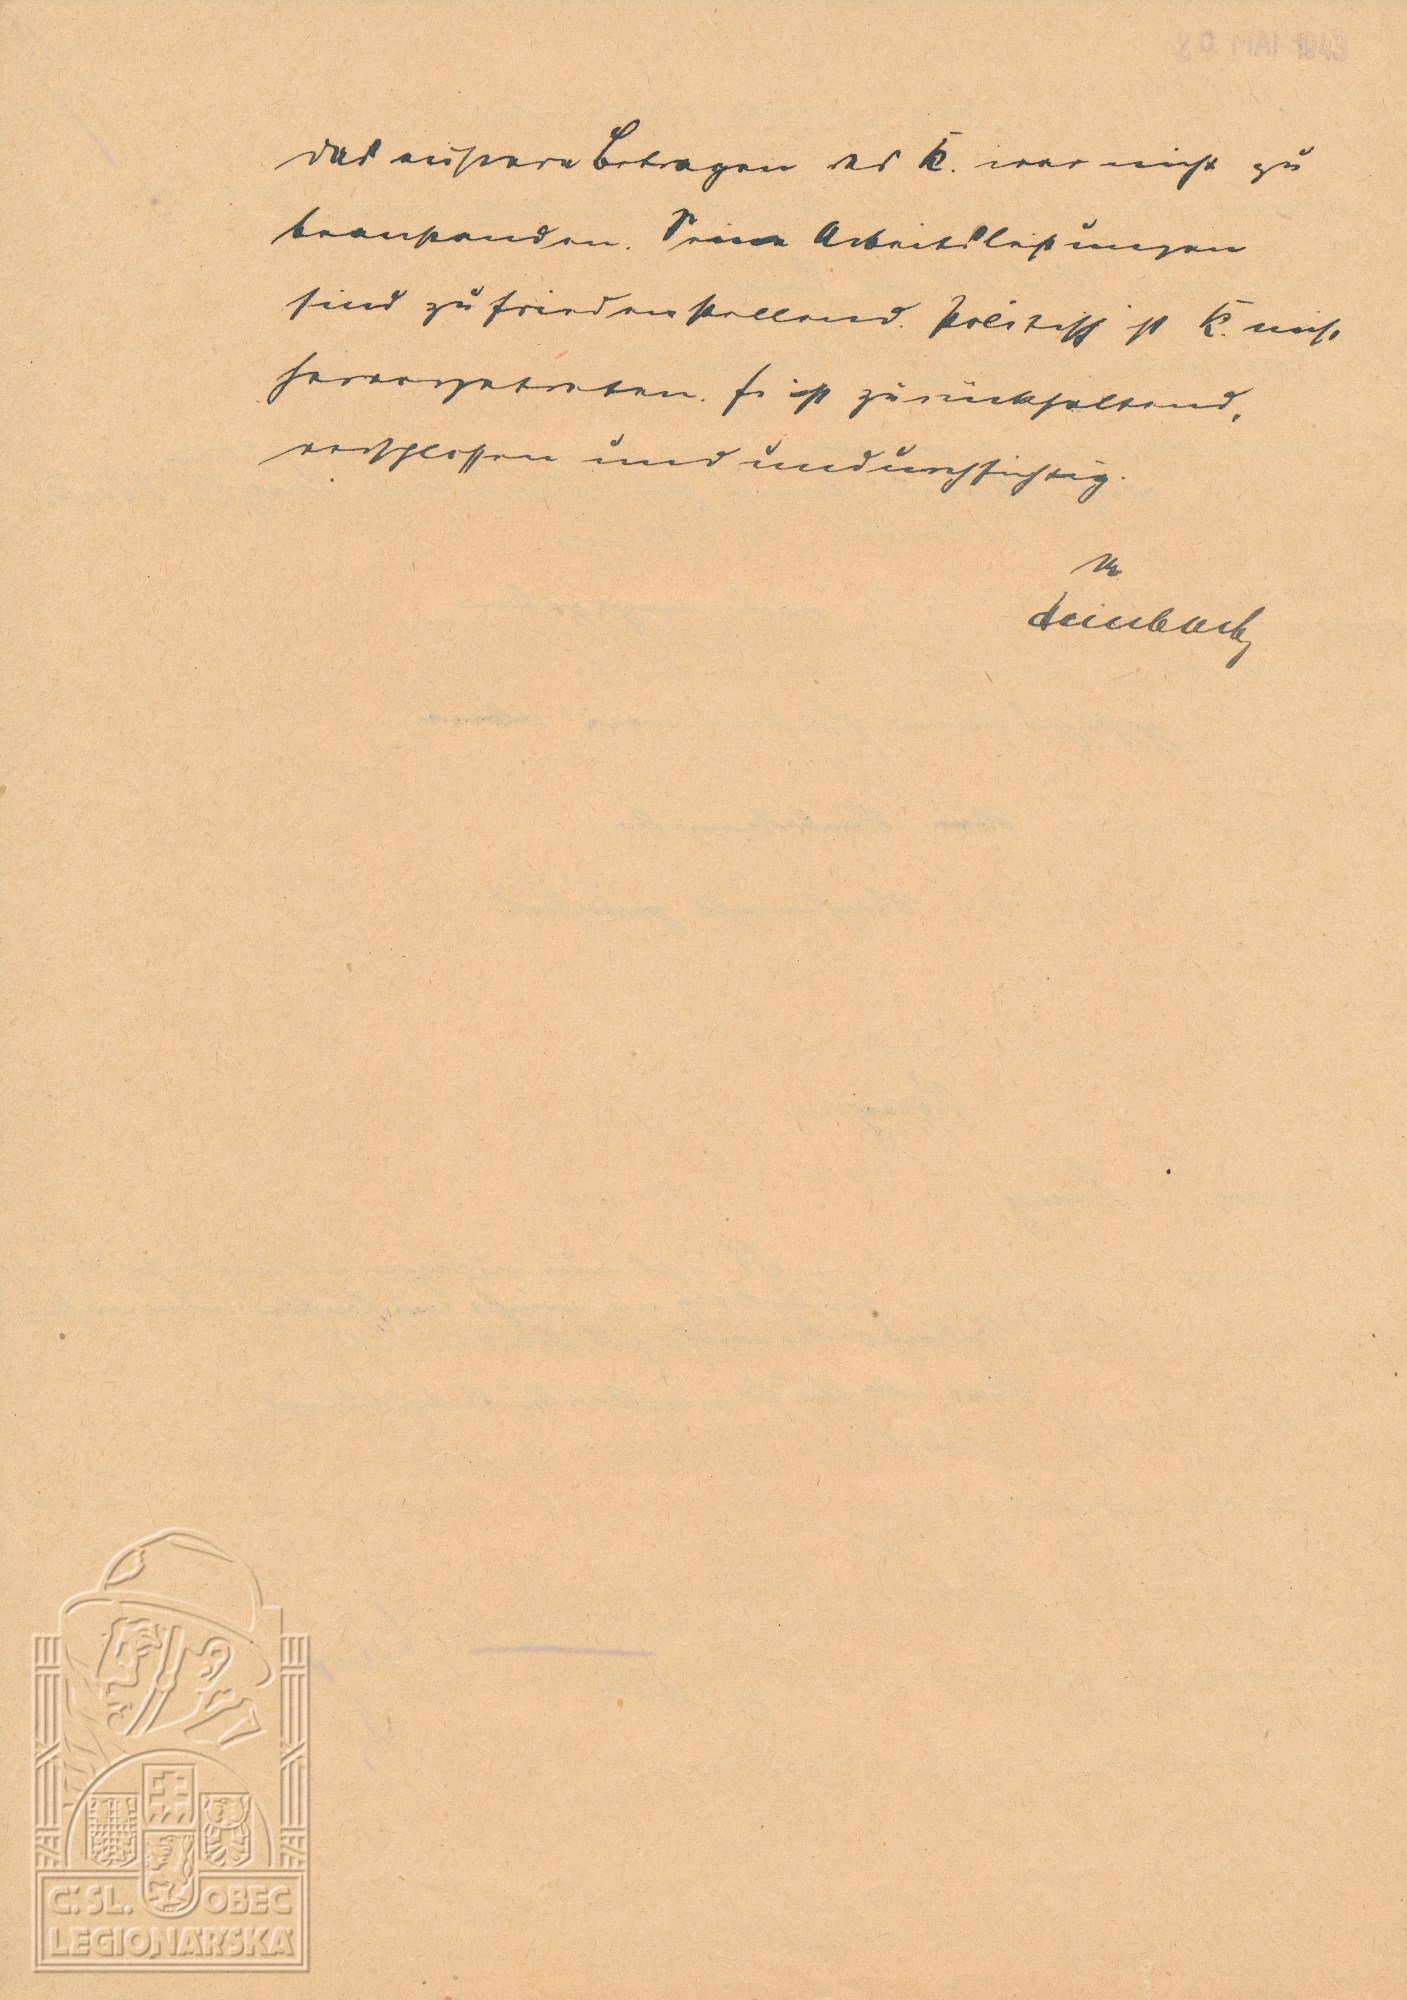 20. MAI 1943
das äussere Betragen des K. war nicht zu
beanstanden. Seine Arbeitsleistungen
sind zufriedenstellend. Politisch ist K. nicht
hervorgetreten. Er ist zurückhaltend,
verschlossen und undurchsichtig.
Č.SL. OBEC
LEGIONÁŘSKÁ